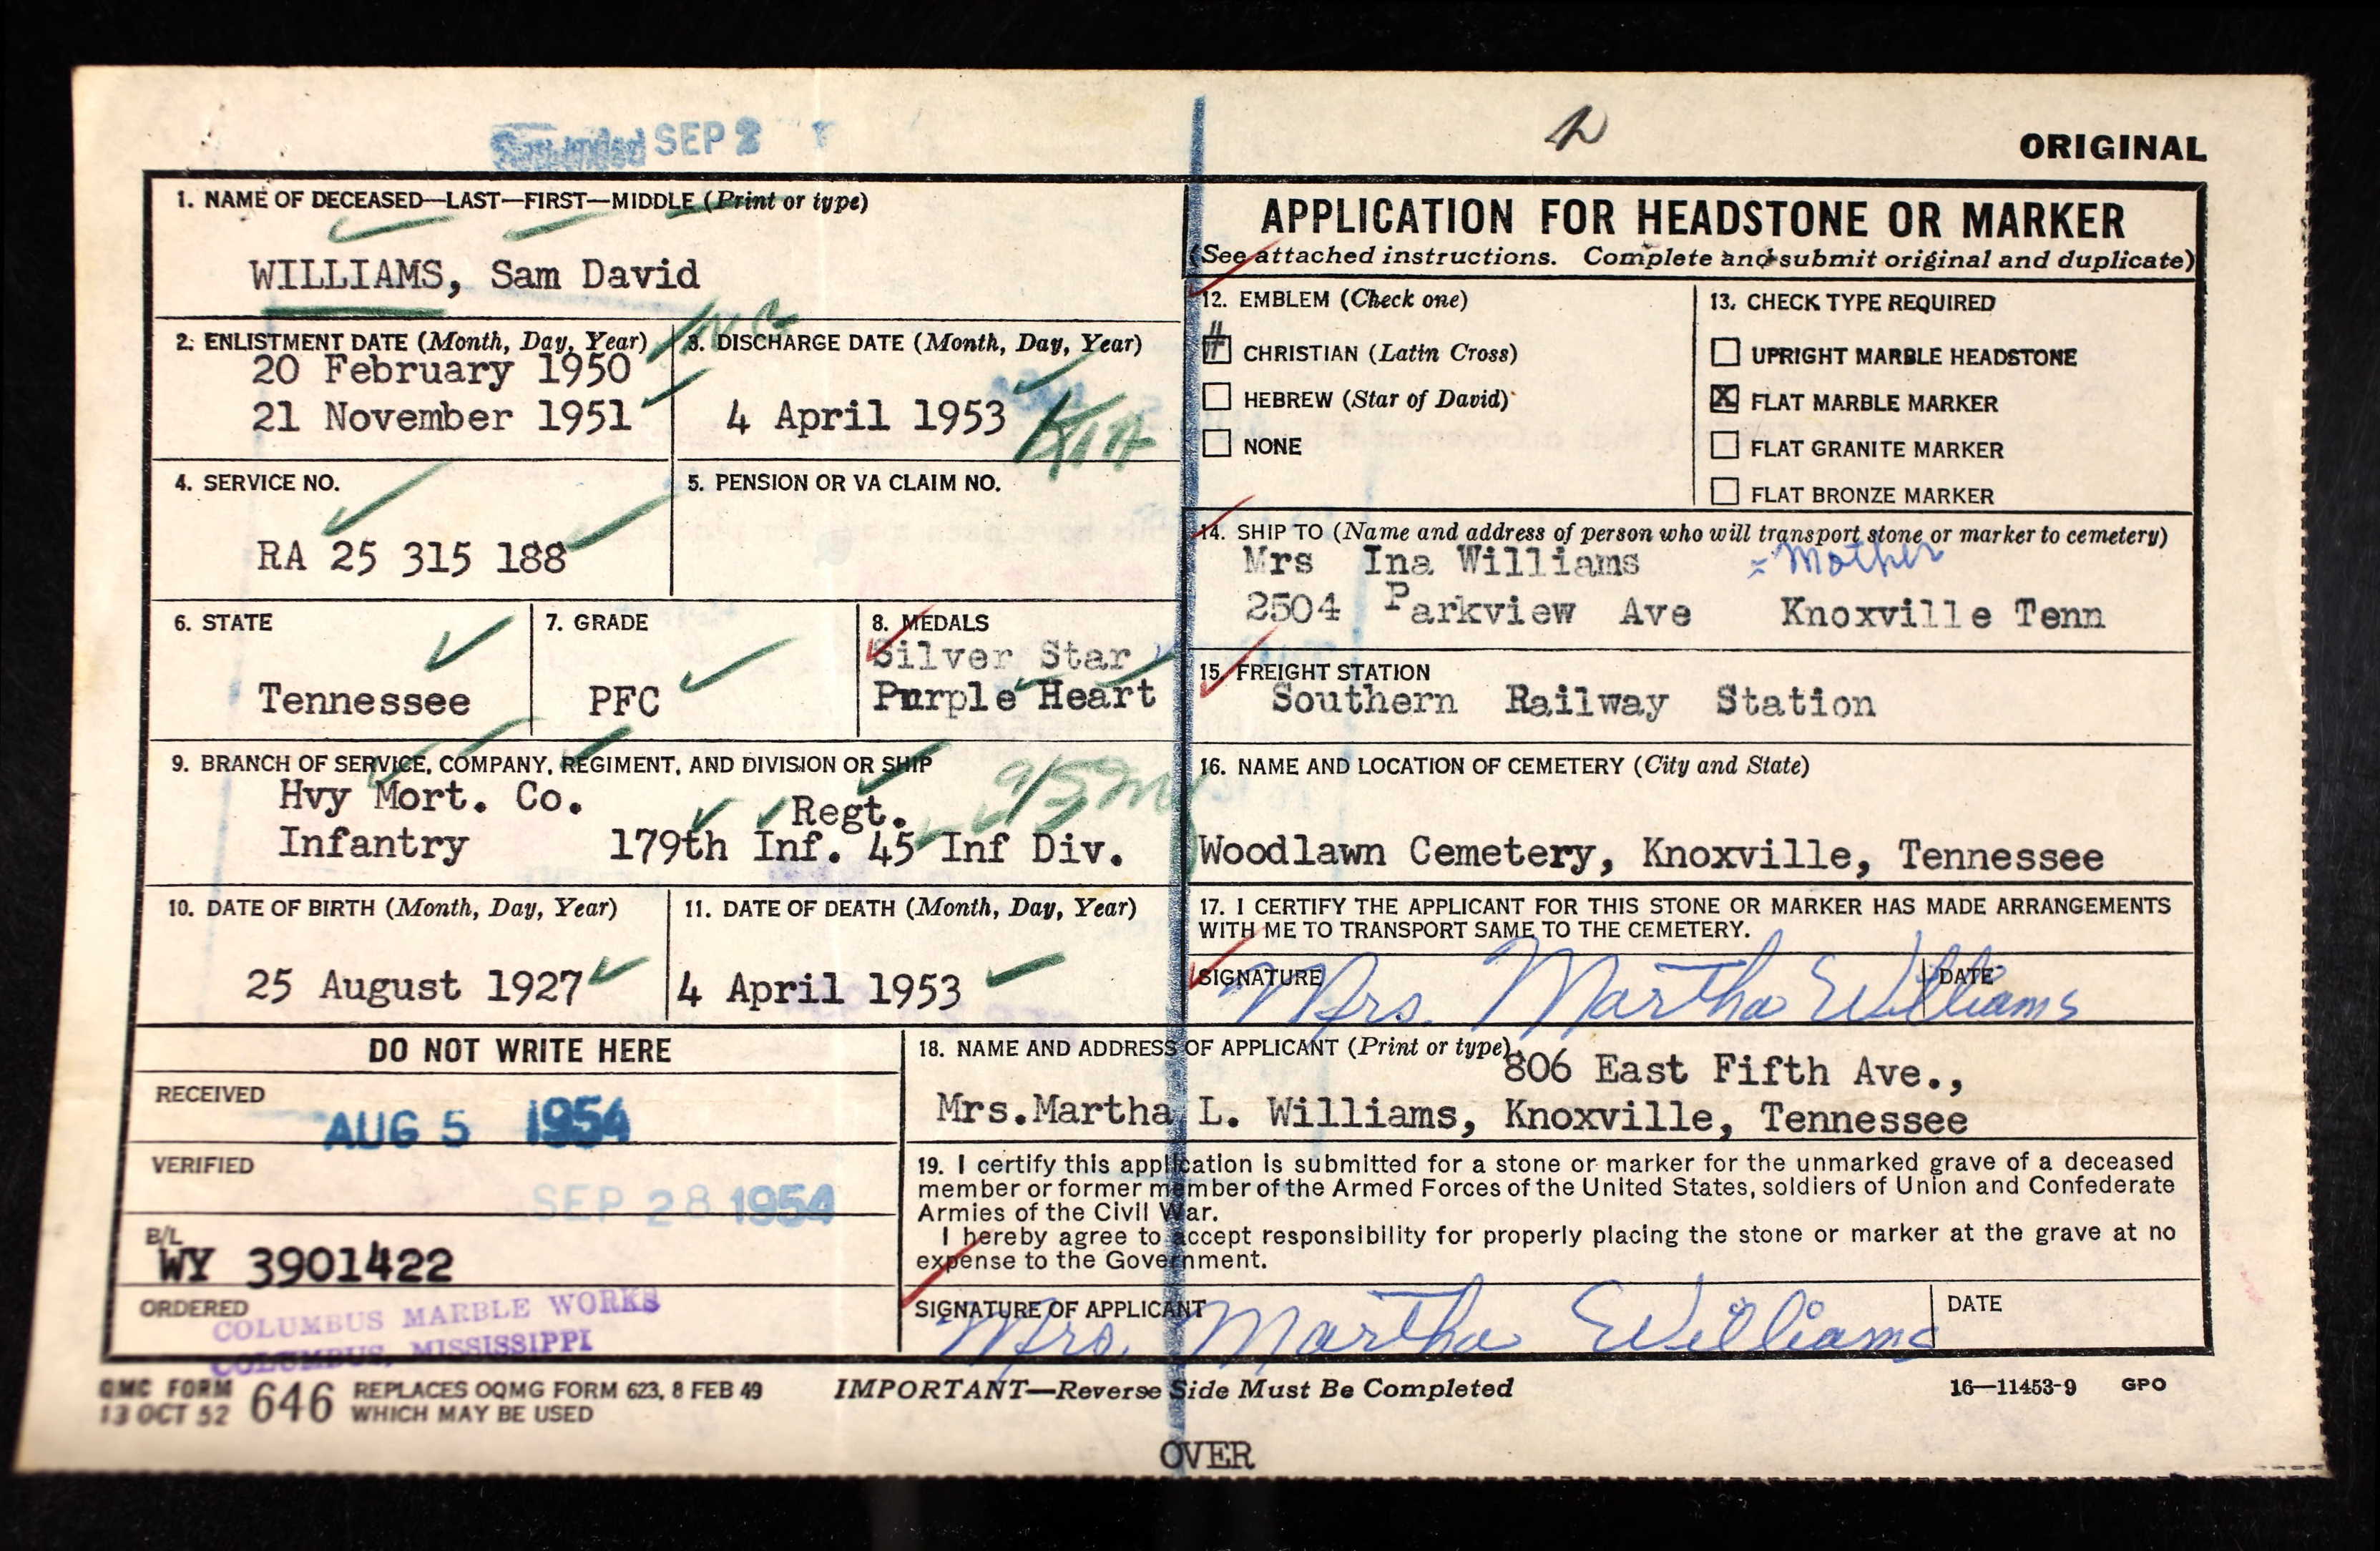 SEP 2
ORIGINAL
1. NAME OF DECEASED—LAST—FIRST—MIDDLE (Print or type)
WILLIAMS, Sam David
2. ENLISTMENT DATE (Month, Day, Year)
20 February 1950
21 November 1951
3. DISCHARGE DATE (Month, Day, Year)
4 April 1953
KIA
4. SERVICE NO.
RA 25 315 188
5. PENSION OR VA CLAIM NO.
6. STATE
Tennessee
7. GRADE
PFC
8. MEDALS
Silver Star
Purple Heart
9. BRANCH OF SERVICE, COMPANY, REGIMENT, AND DIVISION OR SHIP
Hvy Mort. Co.
Regt.
Infantry 179th Inf. 45 Inf Div.
10. DATE OF BIRTH (Month, Day, Year)
25 August 1927
11. DATE OF DEATH (Month, Day, Year)
4 April 1953
APPLICATION FOR HEADSTONE OR MARKER
(See attached instructions. Complete and submit original and duplicate)
12. EMBLEM (Check one)
CHRISTIAN (Latin Cross)
HEBREW (Star of David)
NONE
13. CHECK TYPE REQUIRED
UPRIGHT MARBLE HEADSTONE
X FLAT MARBLE MARKER
FLAT GRANITE MARKER
FLAT BRONZE MARKER
14. SHIP TO (Name and address of person who will transport stone or marker to cemetery)
Mrs Ina Williams = Mother
2504 Parkview Ave Knoxville Tenn
15. FREIGHT STATION
Southern Railway Station
16. NAME AND LOCATION OF CEMETERY (City and State)
Woodlawn Cemetery, Knoxville, Tennessee
17. I CERTIFY THE APPLICANT FOR THIS STONE OR MARKER HAS MADE ARRANGEMENTS
WITH ME TO TRANSPORT SAME TO THE CEMETERY.
SIGNATURE DATE
Mrs. Martha Williams
DO NOT WRITE HERE
RECEIVED
AUG 5 1954
VERIFIED
SEP 28 1954
B/L
WY 3901422
ORDERED
COLUMBUS MARBLE WORKS
COLUMBUS, MISSISSIPPI
18. NAME AND ADDRESS OF APPLICANT (Print or type)
806 East Fifth Ave.,
Mrs.Martha L. Williams, Knoxville, Tennessee
19. I certify this application is submitted for a stone or marker for the unmarked grave of a deceased
member or former member of the Armed Forces of the United States, soldiers of Union and Confederate
Armies of the Civil War.
I hereby agree to accept responsibility for properly placing the stone or marker at the grave at no
expense to the Government.
SIGNATURE OF APPLICANT DATE
Mrs. Martha Williams
QMC FORM
13 OCT 52 646 REPLACES OQMG FORM 623, 8 FEB 49
WHICH MAY BE USED
IMPORTANT—Reverse Side Must Be Completed
16—11453-9 GPO
OVER